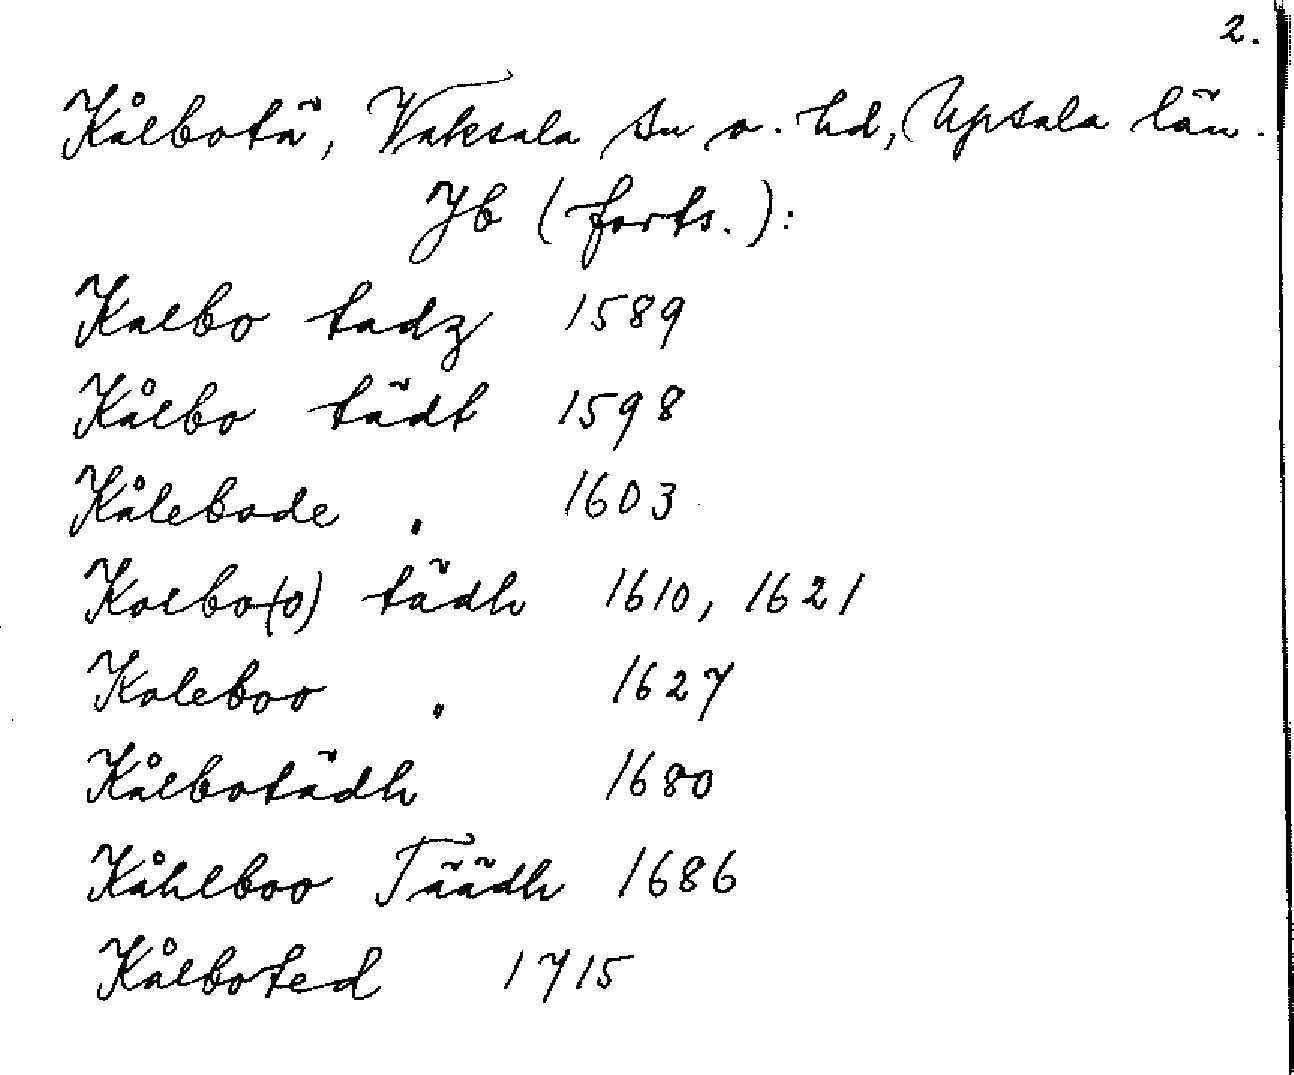 2.
Kålbotä, Vaksala sn o. hd, Upsala län.
Jb (forts.):
Kalbo tadz 1589
Kålbo tädt 1598
Kålebode . 1603
Kolbo(o) tädh 1610, 1621
Koleboo . 1627
Kålbotädh 1680
Kåhlboo Täädh 1686
Kålboted 1715